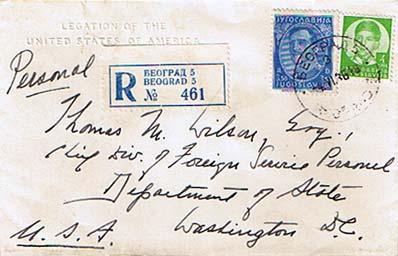 LEGATION OF THE
UNITED STATES OF AMERICA
Personal
R
БЕОГРАД 5
BEOGRAD 5
№ 461
ЈУГОСЛАВИЈА
JUGOSLAVIJA
Thomas M. Wilson, Esq.,
Chief Div. of Foreign Service Personel
Department of State
Washington D.C.
U.S.A.